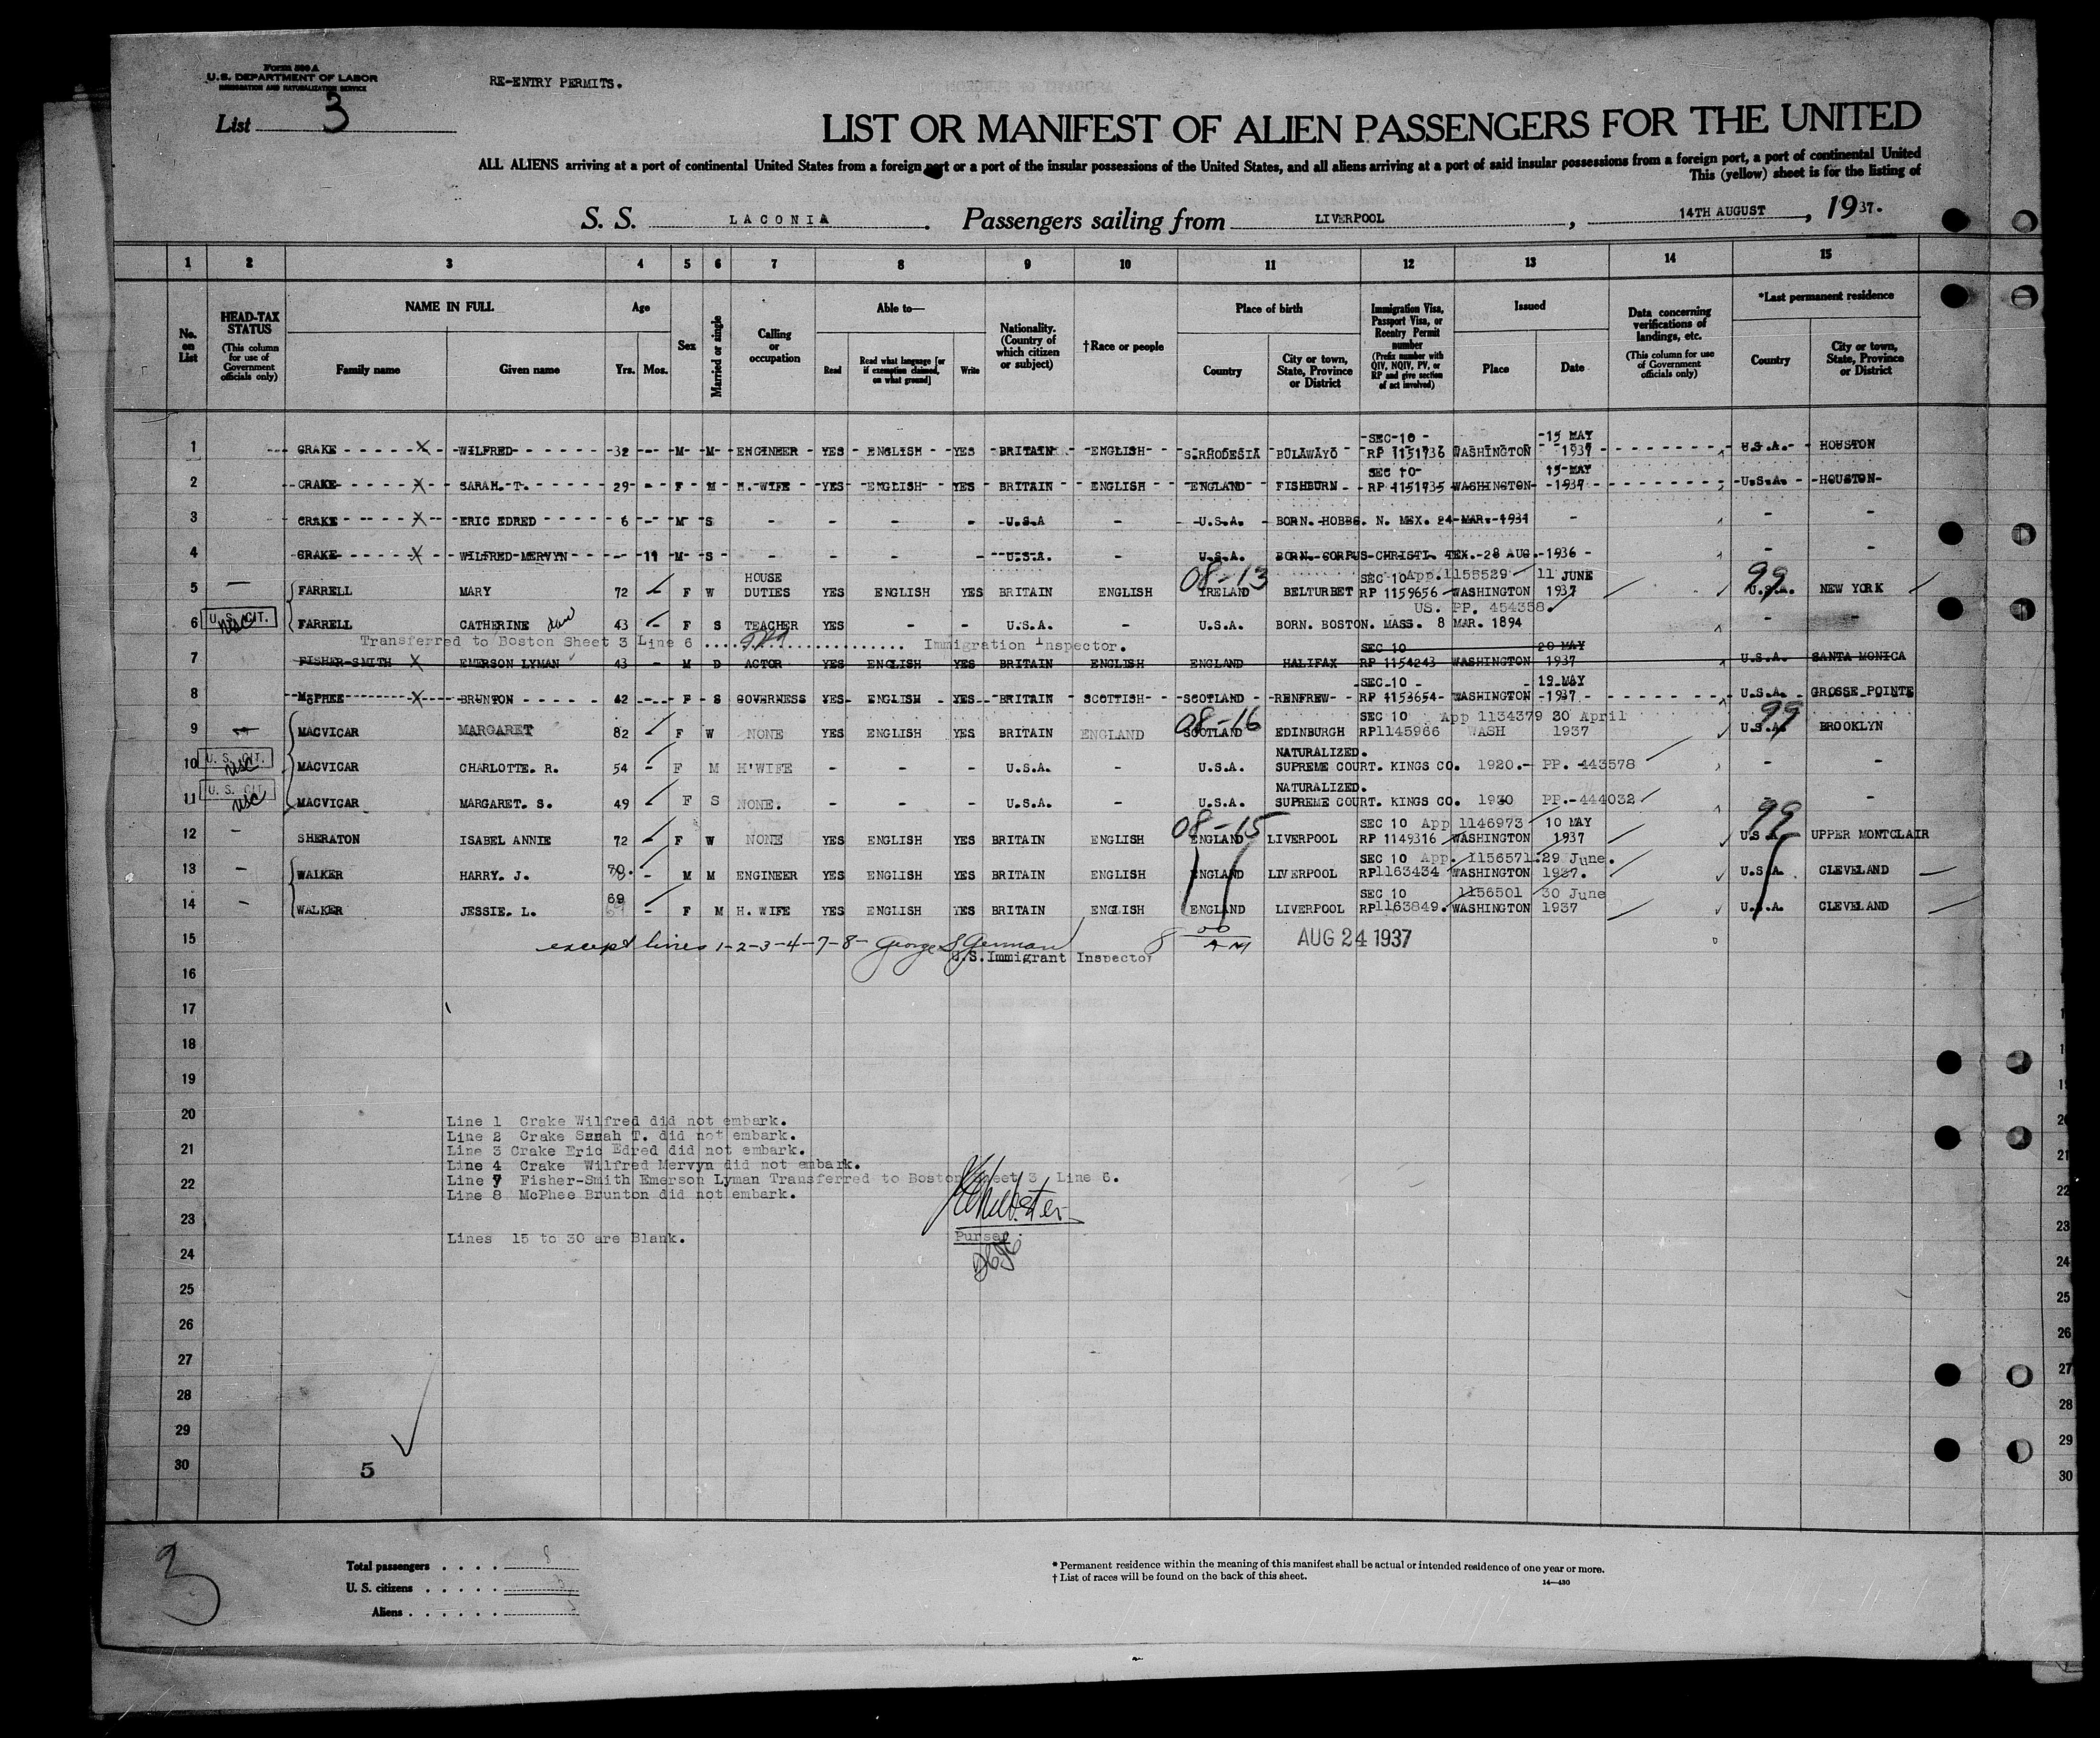 Form 500 A
U.S. DEPARTMENT OF LABOR
IMMIGRATION AND NATURALIZATION SERVICE
RE-ENTRY PERMITS.
List 3
LIST OR MANIFEST OF ALIEN PASSENGERS FOR THE UNITED
ALL ALIENS arriving at a port of continental United States from a foreign port or a port of the insular possessions of the United States, and all aliens arriving at a port of said insular possessions from a foreign port, a port of continental United
This (yellow) sheet is for the listing of
S. S. LACONIA. Passengers sailing from LIVERPOOL, 14TH AUGUST, 1937.
1 2 3 4 5 6 7 8 9 10 11 12 13 14 15
No. on List
HEAD-TAX STATUS (This column for use of Government officials only)
NAME IN FULL Family name Given name
Age Yrs. Mos.
Sex
Married or single
Calling or occupation
Able to— Read Read what language [or if exemption claimed, on what ground] Write
Nationality. (Country of which citizen or subject)
†Race or people
Place of birth Country City or town, State, Province or District
Immigration Visa, Passport Visa, or Reentry Permit number (Prefix number with QIV, NQIV, PV, or RP and give section of act involved)
Issued Place Date
Data concerning verifications of landings, etc. (This column for use of Government officials only)
*Last permanent residence Country City or town, State, Province or District
1 CRAKE X WILFRED 32 M M ENGINEER YES ENGLISH YES BRITAIN ENGLISH S.RHODESIA BULAWAYO SEC 10 RP 1151736 WASHINGTON 15 MAY 1937 U.S.A. HOUSTON
2 CRAKE X SARAH. T. 29 - F M H. WIFE YES ENGLISH YES BRITAIN ENGLISH ENGLAND FISHBURN SEC 10 RP 1151735 WASHINGTON 15 MAY 1937 U.S.A. HOUSTON
3 CRAKE X ERIC EDRED 6 - M S - - - - U.S.A - U.S.A. BORN. HOBBS. N. MEX. 24 MAR. 1931 - - -
4 CRAKE X WILFRED MERVYN - 11 M S - - - - U.S.A. - U.S.A. BORN. CORPUS CHRISTI. TEX. 28 AUG. 1936 - - -
5 FARRELL MARY 72 F W HOUSE DUTIES YES ENGLISH YES BRITAIN ENGLISH 08-13 IRELAND BELTURBET SEC 10 App. 1155529 RP 1159656 WASHINGTON 11 JUNE 1937 99 U.S.A. NEW YORK
US. PP. 454358
6 U. S. CIT. usc FARRELL CATHERINE 43 - F S TEACHER YES - - U.S.A. - U.S.A. BORN. BOSTON. MASS. 8 MAR. 1894 -
Transferred to Boston Sheet 3 Line 6 .......... Immigration Inspector.
7 FISHER-SMITH X EMERSON LYMAN 43 - M D ACTOR YES ENGLISH YES BRITAIN ENGLISH ENGLAND HALIFAX SEC 10 RP 1154243 WASHINGTON 20 MAY 1937 U.S.A. SANTA MONICA
8 McPHEE X BRUNTON 42 F S GOVERNESS YES ENGLISH YES BRITAIN SCOTTISH SCOTLAND RENFREW SEC 10 RP 1153654 WASHINGTON 19 MAY 1937 U.S.A. GROSSE POINTE
9 MACVICAR MARGARET 82 F W NONE YES ENGLISH YES BRITAIN ENGLAND 08-16 SCOTLAND EDINBURGH SEC 10 App 1134379 30 April RP1145966 WASH 1937 99 U.S.A. BROOKLYN
10 U. S. CIT. usc MACVICAR CHARLOTTE. R. 54 - F M H'WIFE - - - U.S.A. - U.S.A. NATURALIZED. SUPREME COURT. KINGS CO. 1920.- PP. 443578 - -
11 U. S. CIT. usc MACVICAR MARGARET. S. 49 F S NONE. - - - U.S.A. - U.S.A. NATURALIZED. SUPREME COURT. KINGS CO. 1930 PP.-444032 - -
12 - SHERATON ISABEL ANNIE 72 - F W NONE YES ENGLISH YES BRITAIN ENGLISH 08-15 ENGLAND LIVERPOOL SEC 10 App 1146973 RP 1149316 WASHINGTON 10 MAY 1937 99 U.S.A. UPPER MONTCLAIR
13 - WALKER HARRY. J. 70. - M M ENGINEER YES ENGLISH YES BRITAIN ENGLISH ENGLAND LIVERPOOL SEC 10 App. 1156571 29 June. RP1163434 WASHINGTON 1937. U.S.A. CLEVELAND
14 - WALKER JESSIE. L. 69 - F M H. WIFE YES ENGLISH YES BRITAIN ENGLISH ENGLAND LIVERPOOL SEC 10 1156501 30 June RP1163849. WASHINGTON 1937 U.S.A. CLEVELAND
15 except lines 1-2-3-4-7-8- George S German 8 00 AM AUG 24 1937
U.S. Immigrant Inspector
16
17
18
19
20
Line 1 Crake Wilfred did not embark.
Line 2 Crake Sarah T. did not embark.
21
Line 3 Crake Eric Edred did not embark.
Line 4 Crake Wilfred Mervyn did not embark.
22
Line 7 Fisher-Smith Emerson Lyman Transferred to Boston Sheet 3 Line 6.
Line 8 McPhee Brunton did not embark.
23
Lines 15 to 30 are Blank.
Purser
24
25
26
27
28
29
30
5
3
Total passengers . . . . 8
U. S. citizens . . . . . 3
Aliens . . . . . . 5
* Permanent residence within the meaning of this manifest shall be actual or intended residence of one year or more.
† List of races will be found on the back of this sheet.
14—430